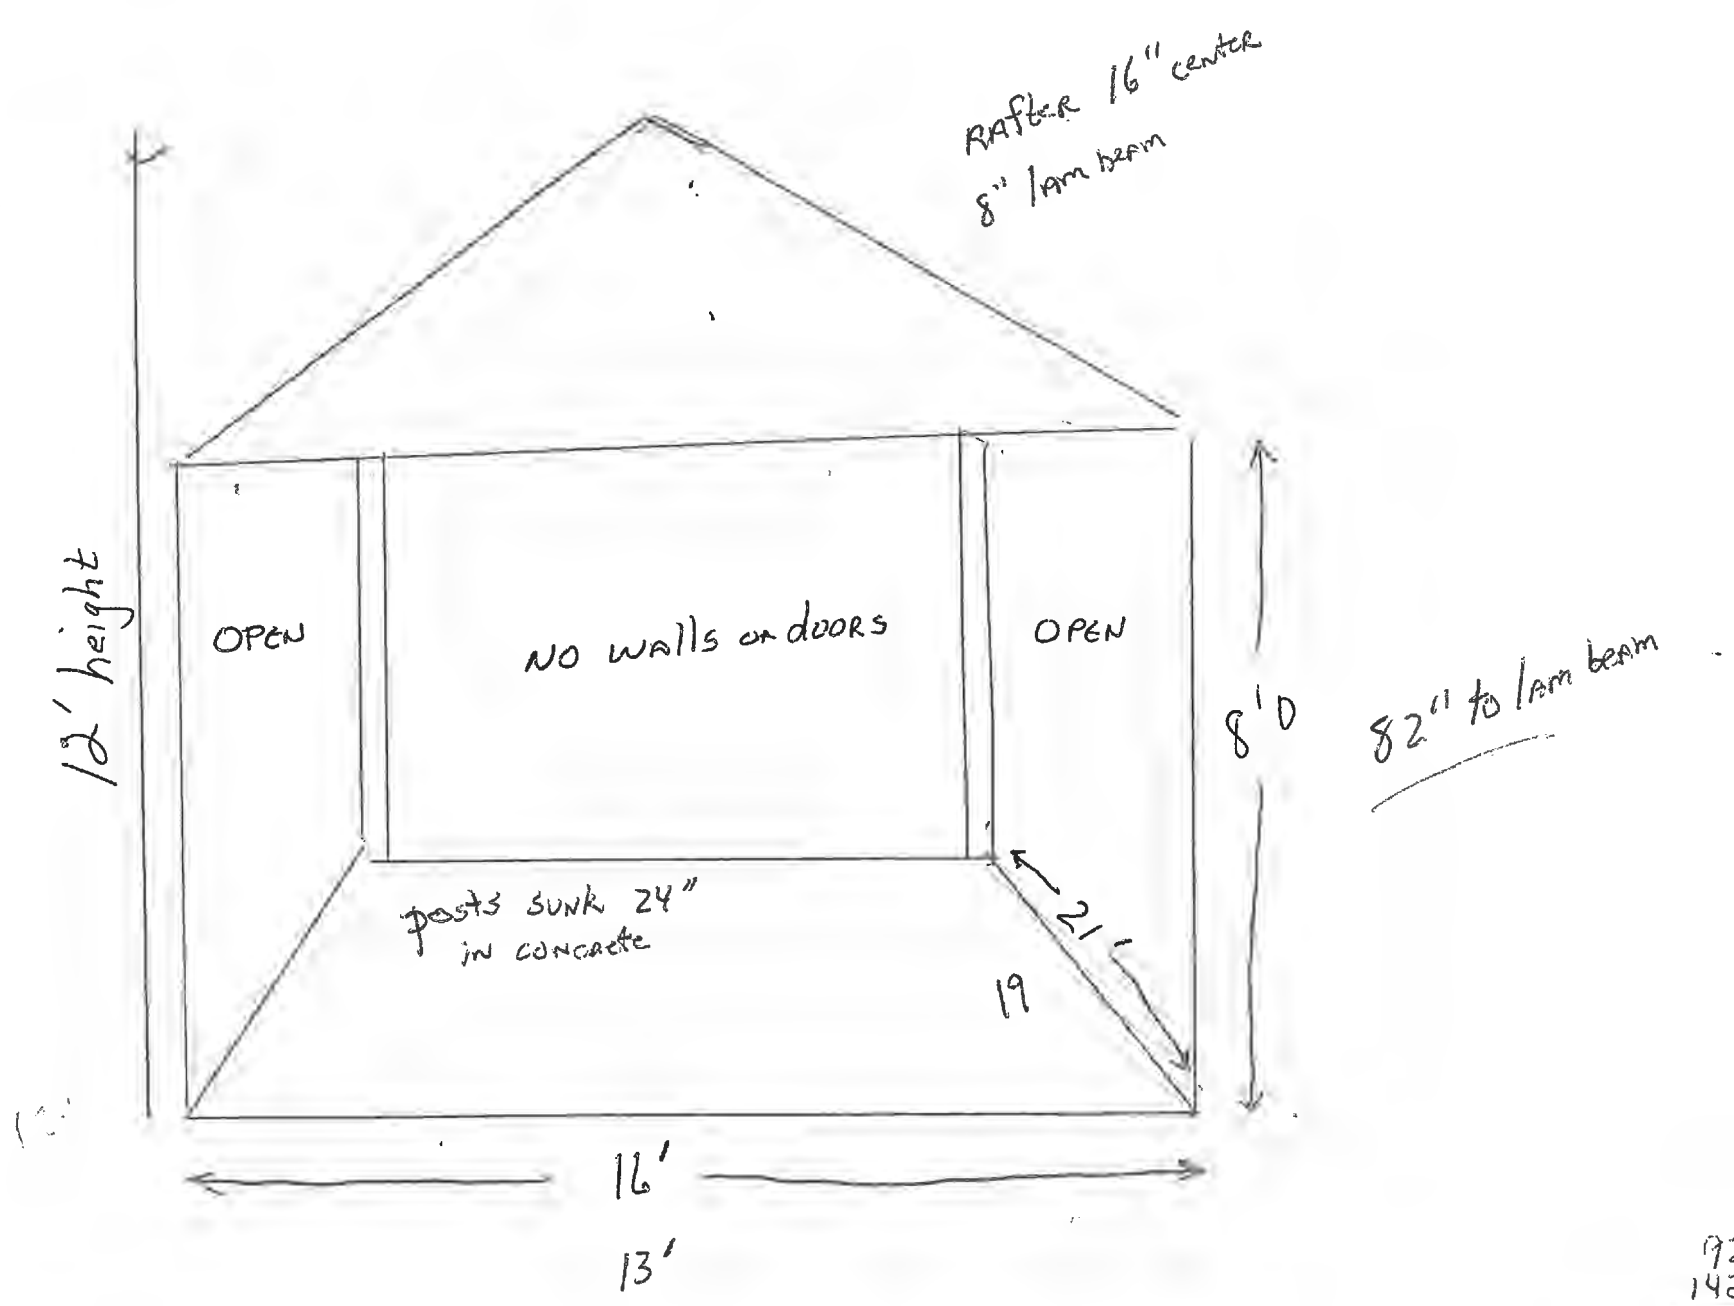 RAFTER 16" CENTER
8" LAM BEAM
12' height
OPEN
NO WALLS OR DOORS
OPEN
8'0
82" to LAM BEAM
posts SUNK 24"
IN CONCRETE
21'
19
16'
13'